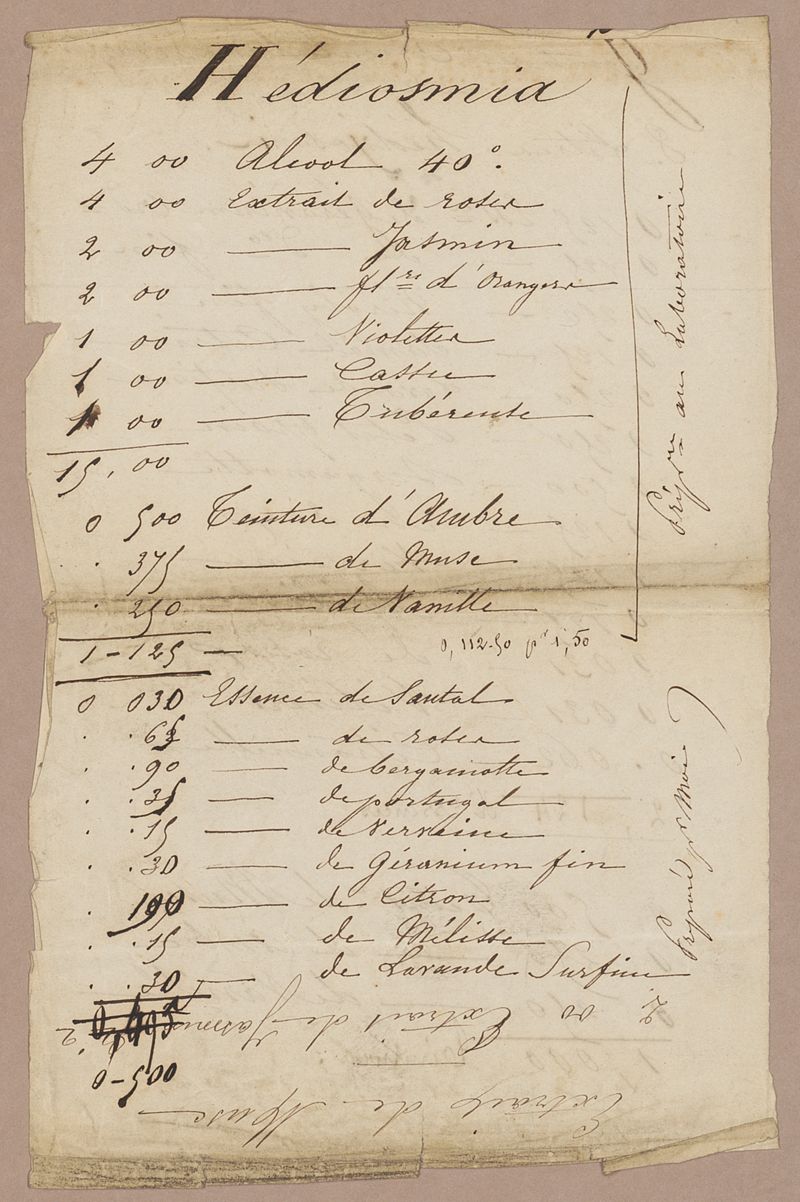 Hédiosmia
4 00 Alcool 40°.
4 00 Extrait de roses
2 00 — Jasmin
2 00 — flrs d'Oranger
1 00 — Violettes
1 00 — Cassie
1 00 — Tubéreuse
15,00
0 500 Teinture d'Ambre
. 375 — de Musc
. 250 — de Vanille
1-125 — 0,112-50 pr 1,50
0 030 Essence de Santal
. .65 — de roses
. .90 — de bergamotte
. .35 — de portugal
. .15 — de Verveine
. .30 — de Géranium fin
. 190 — de Citron
. .15 — de Mélisse
. .30 — de Lavande Surfine
0-500
Prépre au Laboratoire
Préparé pr Moi
Extrait de Musc
2 00 Extrait de Jasmin